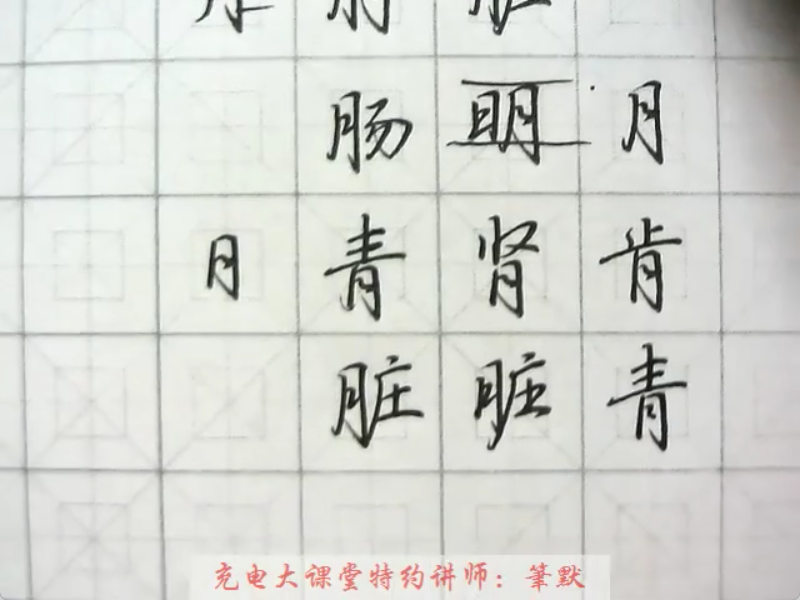 肠 明 月
月 青 肾 肯
脏 脏 青
充电大课堂特约讲师：筆默